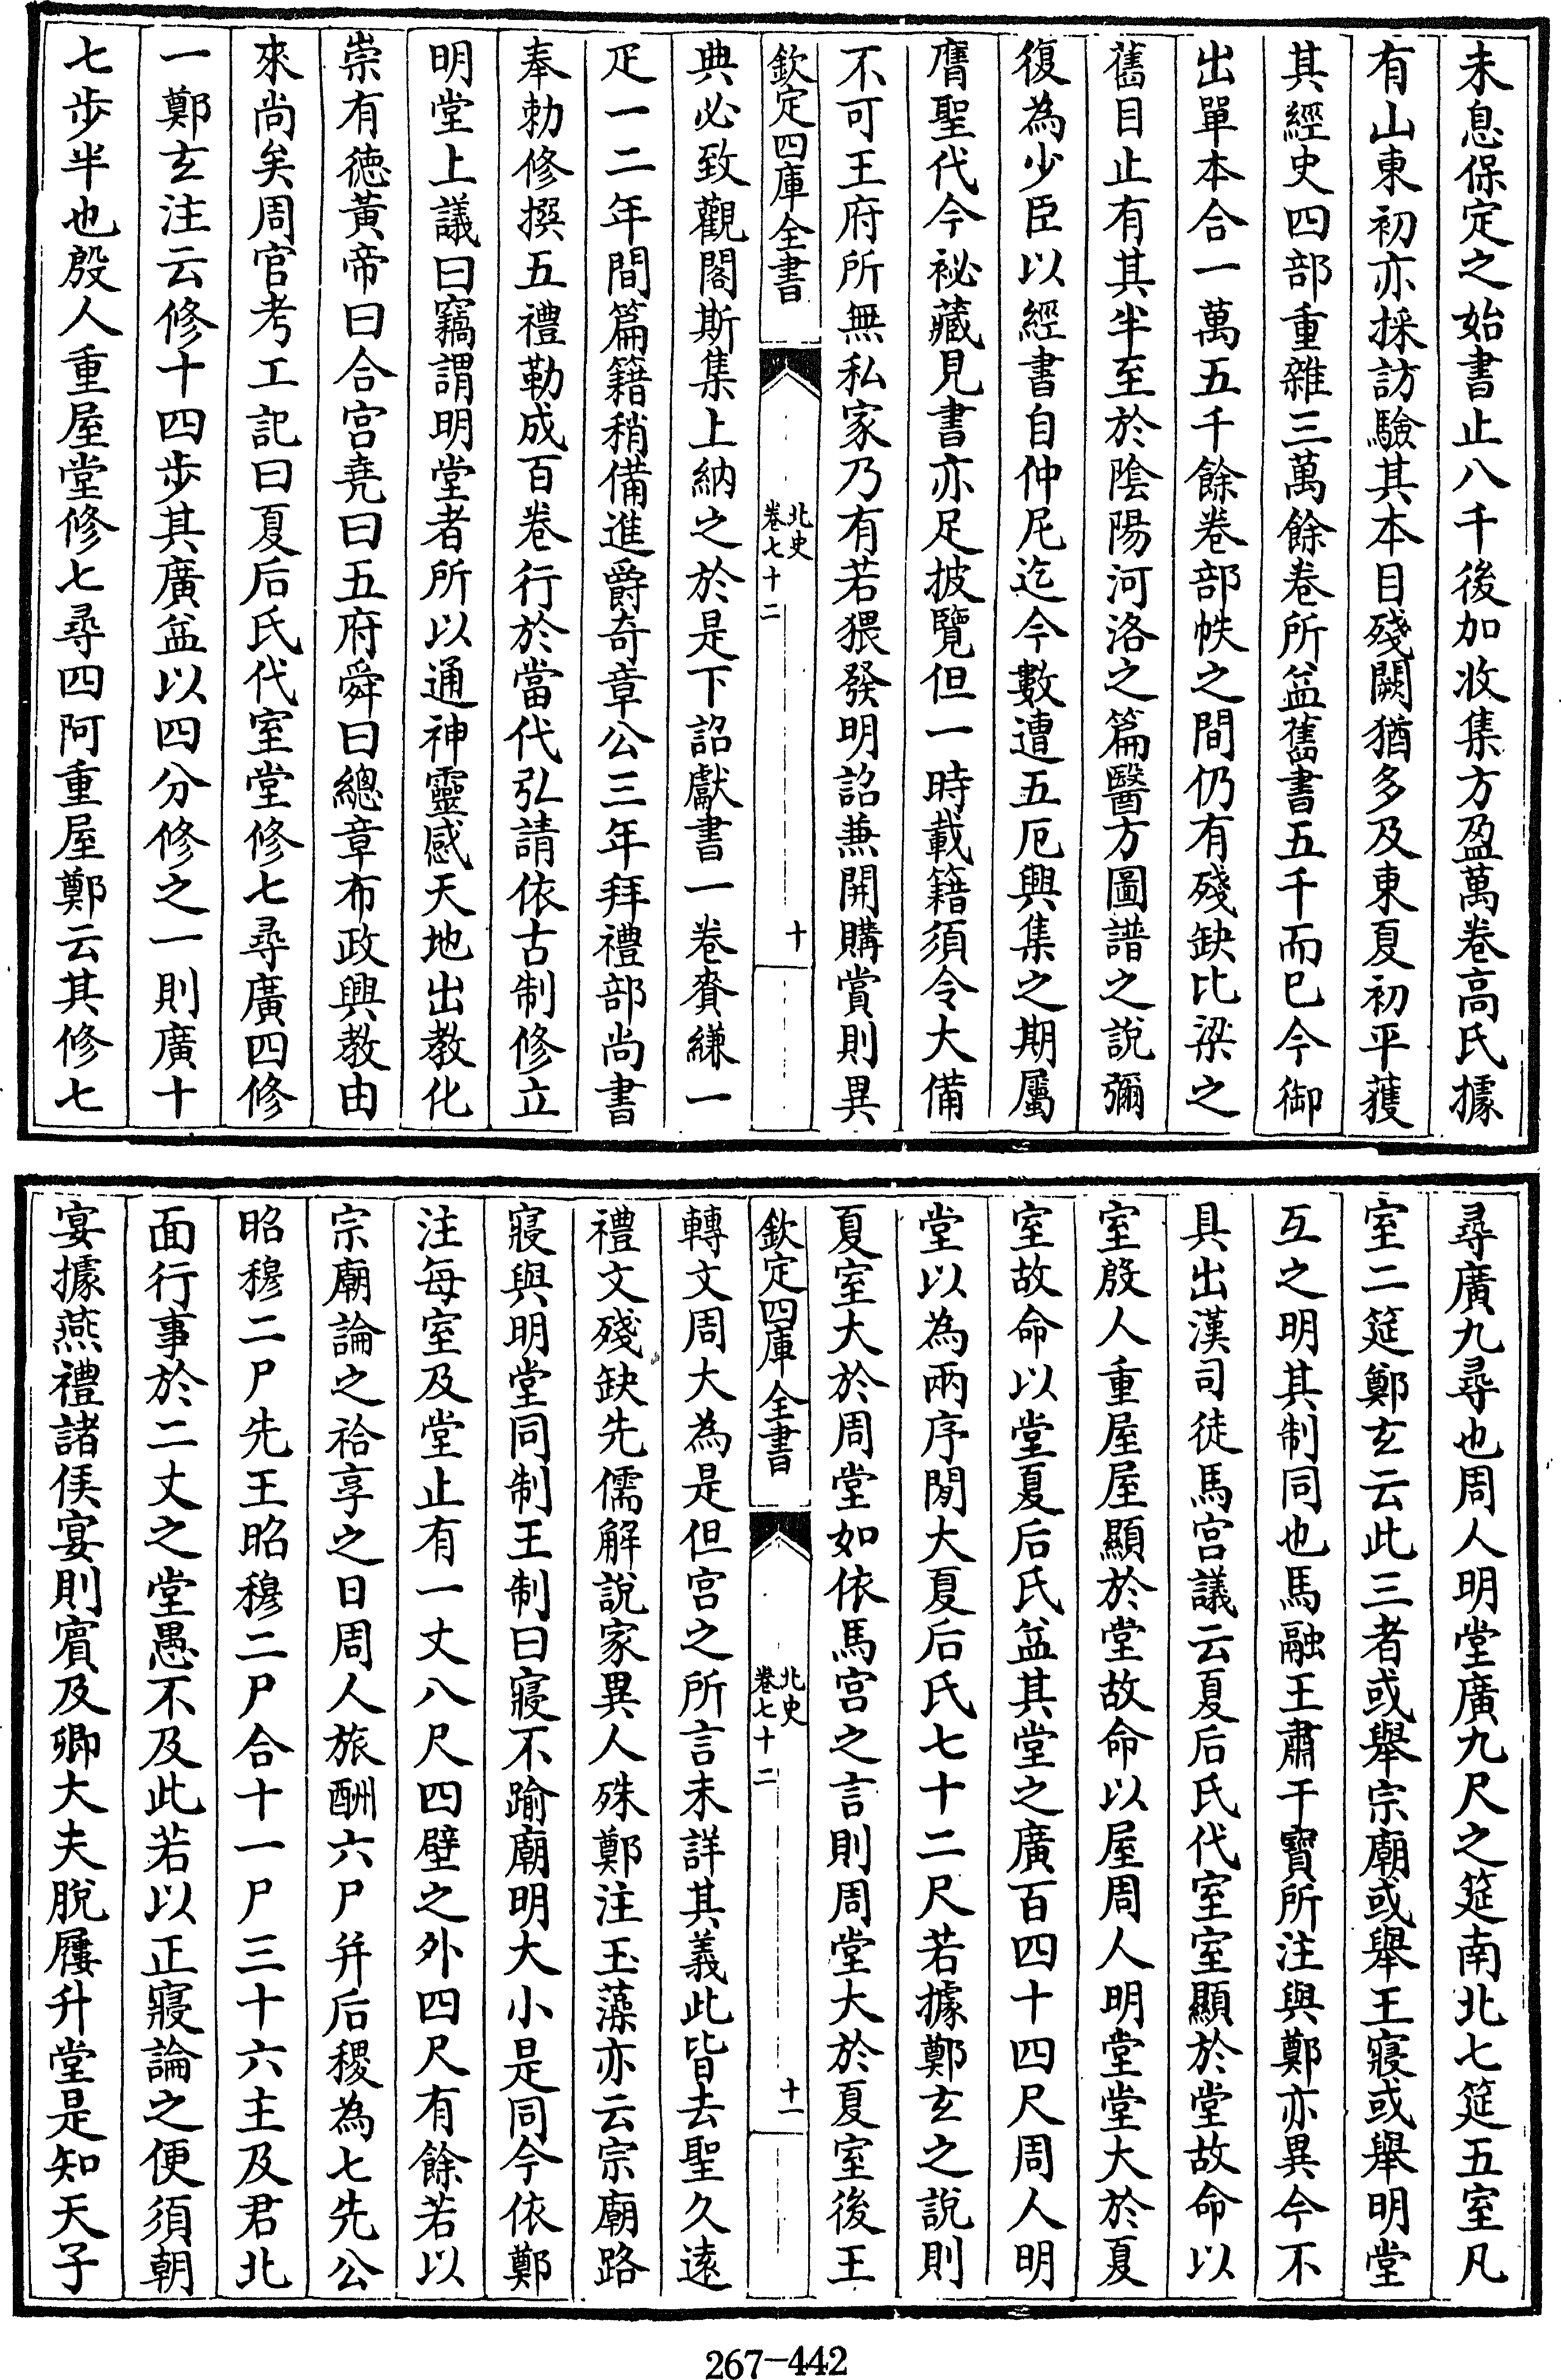 未息保定之始書止八千後加收集方盈萬卷高氏據
有山東初亦採訪驗其本目殘闕猶多及東夏初平獲
其經史四部重雜三萬餘卷所益舊書五千而已今御
出單本合一萬五千餘卷部帙之間仍有殘缺比梁之
舊目止有其半至於陰陽河洛之篇醫方圖譜之說彌
復為少臣以經書自仲尼迄今數遭五厄興集之期屬
膺聖代今祕藏見書亦足披覽但一時載籍須令大備
不可王府所無私家乃有若猥發明詔兼開購賞則異
欽定四庫全書
北史
卷七十二
十
典必致觀閣斯集上納之於是下詔獻書一卷賚縑一
疋一二年間篇籍稍備進爵奇章公三年拜禮部尚書
奉勅修撰五禮勒成百卷行於當代弘請依古制修立
明堂上議曰竊謂明堂者所以通神靈感天地出教化
崇有德黃帝曰合宮堯曰五府舜曰總章布政興教由
來尚矣周官考工記曰夏后氏代室堂修七尋廣四修
一鄭玄注云修十四步其廣益以四分修之一則廣十
七步半也殷人重屋堂修七尋四阿重屋鄭云其修七
尋廣九尋也周人明堂廣九尺之筵南北七筵五室凡
室二筵鄭玄云此三者或舉宗廟或舉王寢或舉明堂
互之明其制同也馬融王肅干寶所注與鄭亦異今不
具出漢司徒馬宮議云夏后氏代室室顯於堂故命以
室殷人重屋屋顯於堂故命以屋周人明堂堂大於夏
室故命以堂夏后氏益其堂之廣百四十四尺周人明
堂以為兩序間大夏后氏七十二尺若據鄭玄之說則
夏室大於周堂如依馬宮之言則周堂大於夏室後王
欽定四庫全書
北史
卷七十二
十一
轉文周大為是但宮之所言未詳其義此皆去聖久遠
禮文殘缺先儒解說家異人殊鄭注玉藻亦云宗廟路
寢與明堂同制王制曰寢不踰廟明大小是同今依鄭
注每室及堂止有一丈八尺四壁之外四尺有餘若以
宗廟論之祫享之日周人旅酬六尸并后稷為七先公
昭穆二尸先王昭穆二尸合十一尸三十六主及君北
面行事於二丈之堂愚不及此若以正寢論之便須朝
宴據燕禮諸侯宴則賓及卿大夫脫屨升堂是知天子
267-442